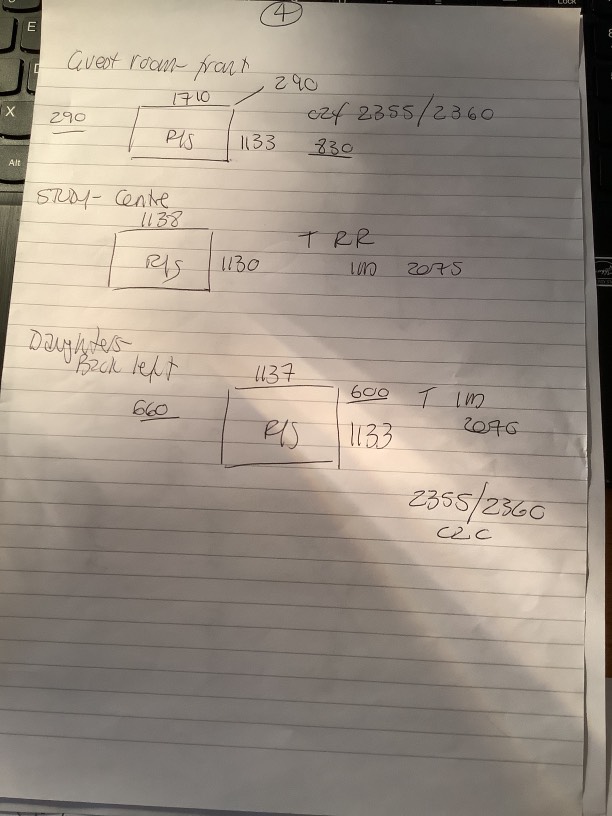 4
Guest room - front
1710 290
290 R/S 1133 c2f 2355/2360
830
STUDY - Centre
1138
R/S 1130 T RR
1M 2075
Daughters -
Back left
1137
660 R/S 600 T 1M
1133 2076
2355/2360
C2C